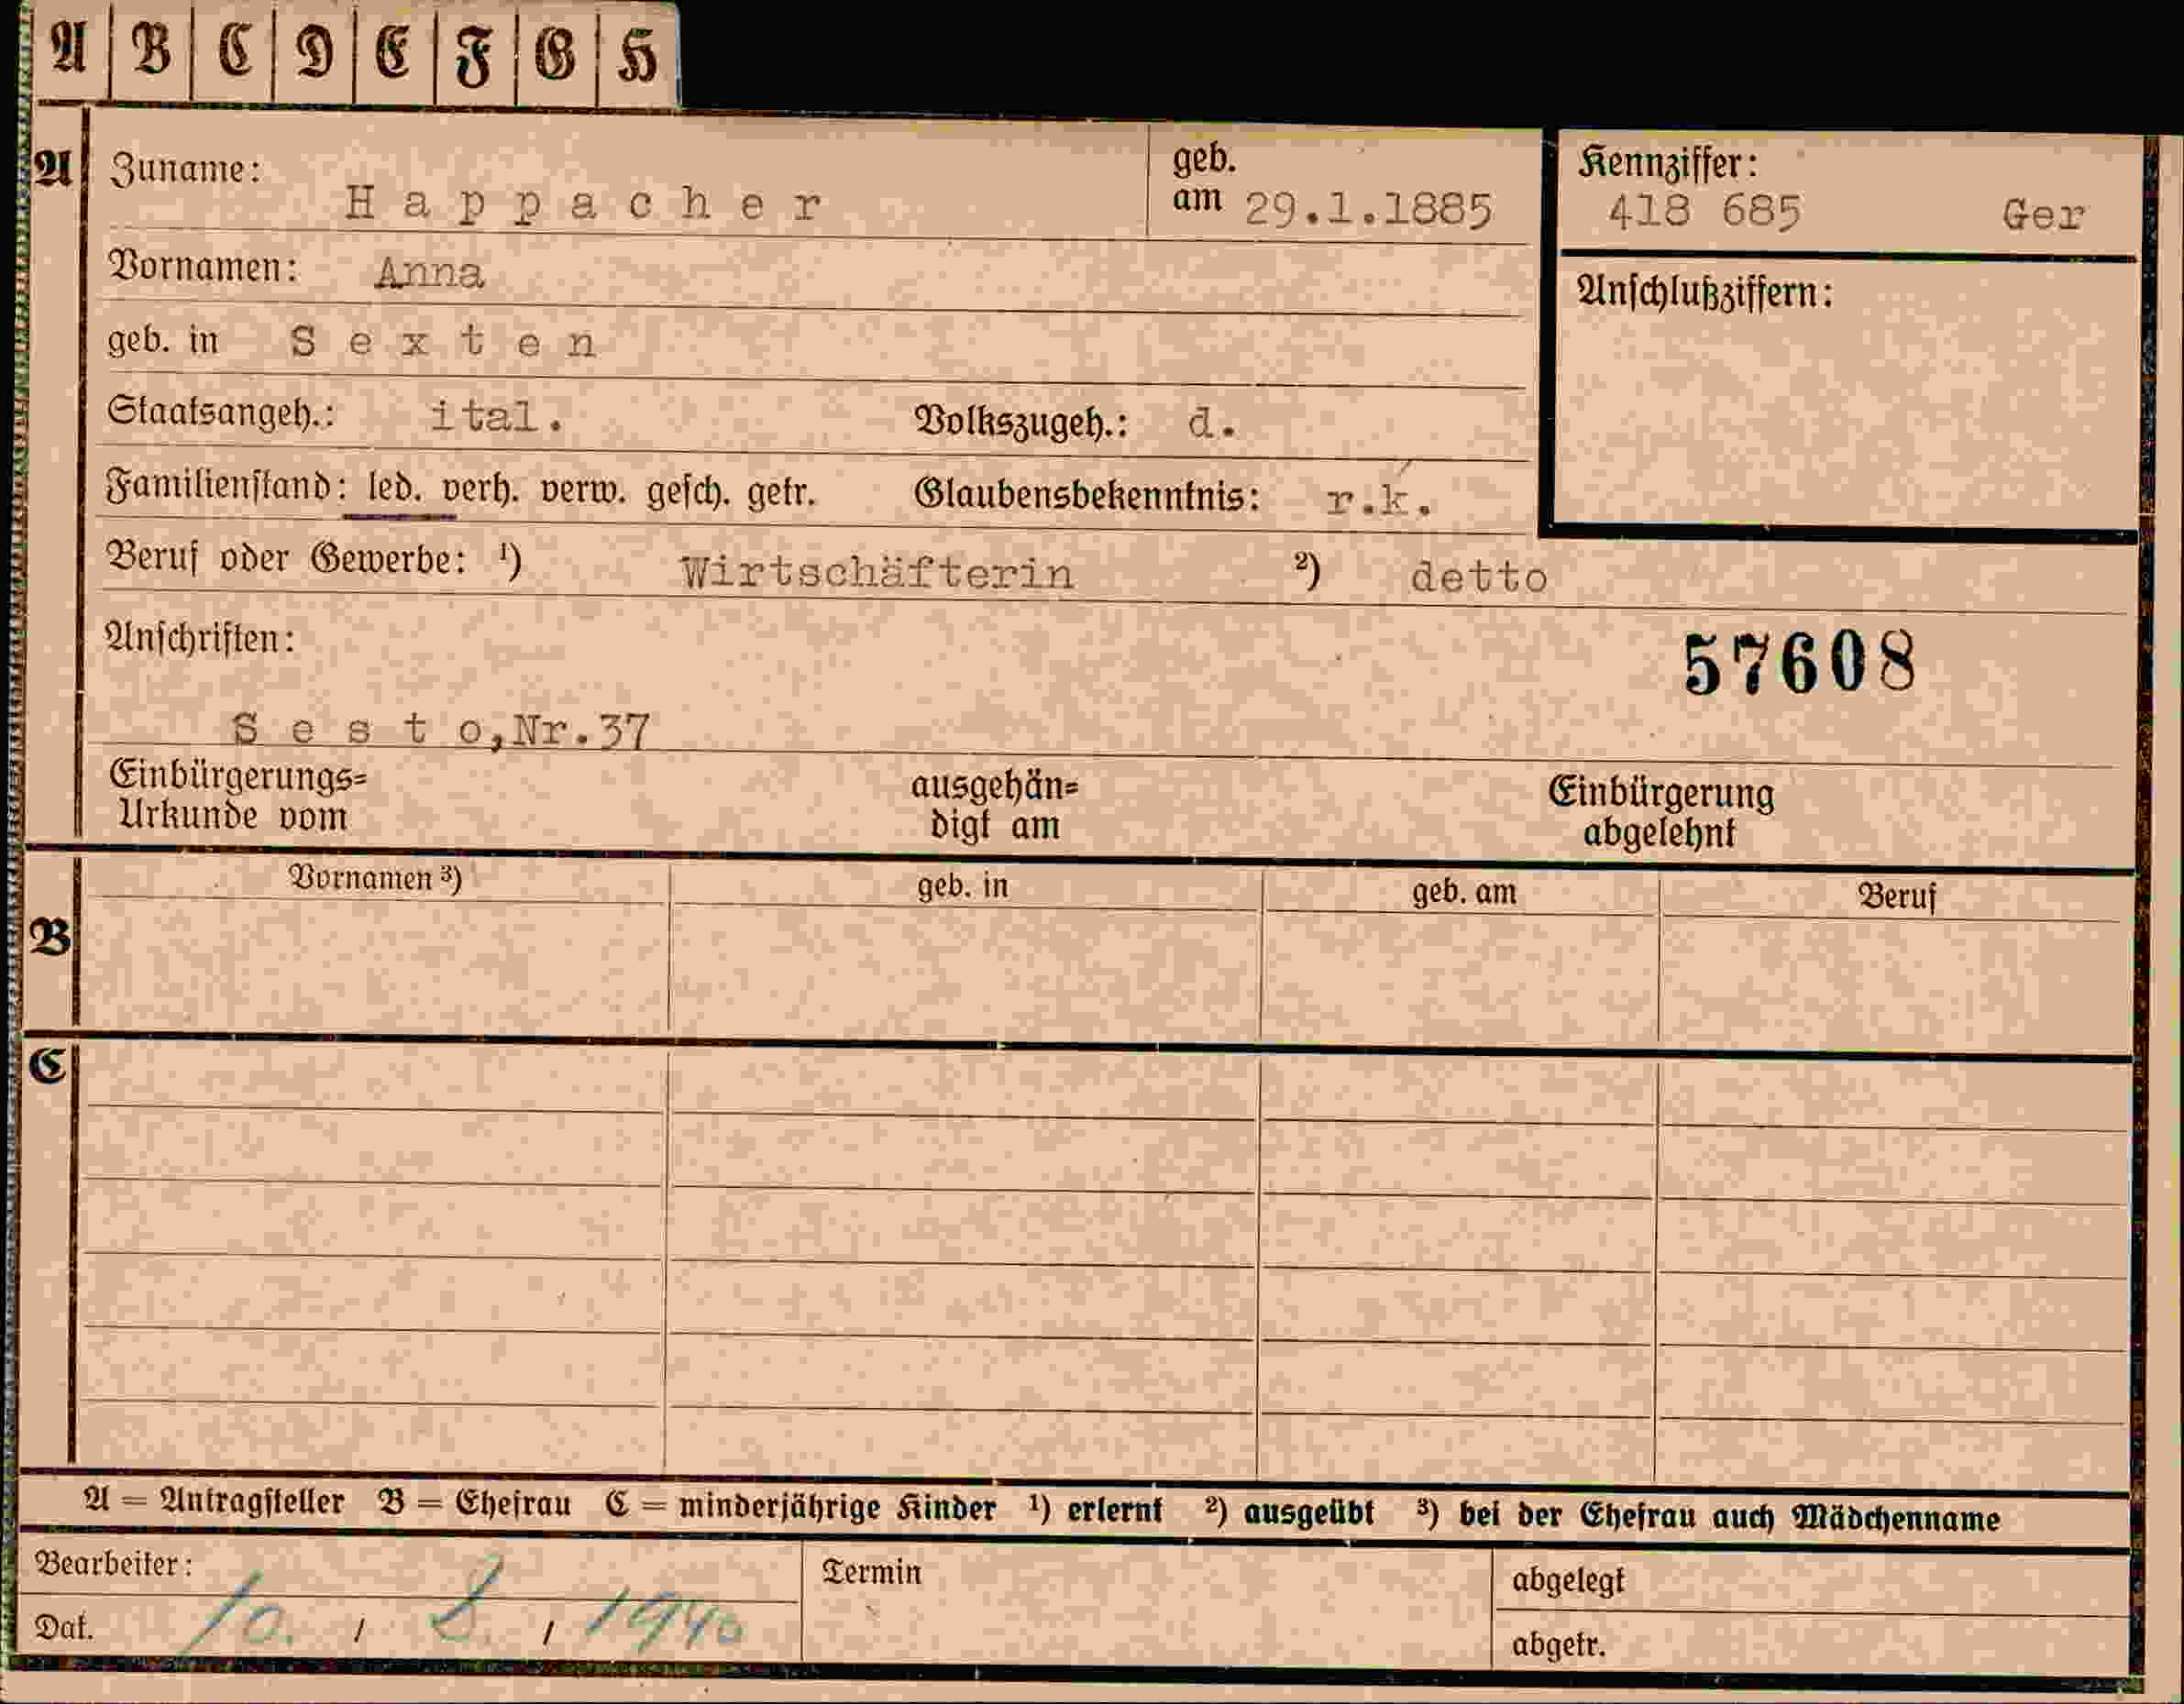 A B C D E F G H
A Zuname: Happacher geb. am 29.1.1885 Kennziffer: 418 685 Ger
Vornamen: Anna Anschlußziffern:
geb. in Sexten
Staatsangeh.: ital. Volkszugeh.: d.
Familienstand: led. verh. verw. gesch. getr. Glaubensbekenntnis: r.k.
Beruf oder Gewerbe: ¹) Wirtschäfterin ²) detto
Anschriften: 57608
Sesto,Nr.37
Einbürgerungs= ausgehän= Einbürgerung
Urkunde vom digt am abgelehnt
Vornamen ³) geb. in geb. am Beruf
B
C
A = Antragsteller B = Ehefrau C = minderjährige Kinder ¹) erlernt ²) ausgeübt ³) bei der Ehefrau auch Mädchenname
Bearbeiter: Termin abgelegt
Dat. 10. / 8. / 1940 abgetr.